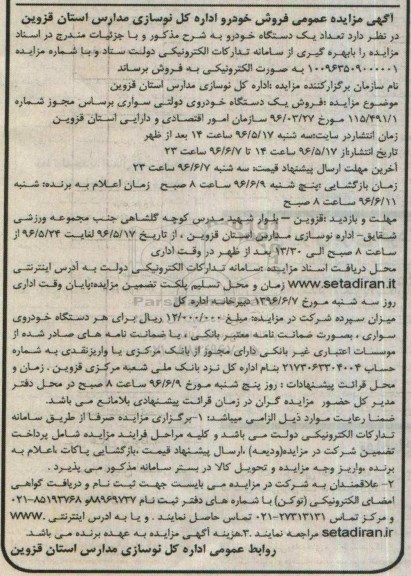 آگهی مزایده عمومی فروش خودرو اداره کل نوسازی مدارس استان قزوین
در نظر دارد تعداد یک دستگاه خودرو به شرح مذکور و با جزئیات مندرج در اسناد
مزایده را بابهره گیری از سامانه تدارکات الکترونیکی دولت ستاد و با شماره مزایده
۱۰۰۹۶۳۵۰۹۰۰۰۰۰۱ به صورت الکترونیکی به فروش برساند
نام سازمان برگزارکننده مزایده :اداره کل نوسازی مدارس استان قزوین
موضوع مزایده :فروش یک دستگاه خودروی دولتی سواری براساس مجوز شماره
۱۱۵/۴۹۱/۱ مورخ ۹۶/۰۳/۲۷ سازمان امور اقتصادی و دارایی استان قزوین
زمان انتشاردر سایت:سه شنبه ۹۶/۵/۱۷ ساعت ۱۴ بعد از ظهر
تاریخ انتشار:از ۹۶/۵/۱۷ ساعت ۱۴ تا ۹۶/۶/۷ ساعت ۲۳
آخرین مهلت ارسال پیشنهاد قیمت: سه شنبه ۹۶/۶/۷ ساعت ۲۳
زمان بازگشایی :پنج شنبه ۹۶/۶/۹ ساعت ۸ صبح زمان اعلام به برنده: شنبه
۹۶/۶/۱۱ ساعت ۸ صبح
مهلت و بازدید :قزوین – بلوار شهید مدرس کوچه گلشاهی جنب مجموعه ورزشی
شقایق- اداره نوسازی مدارس استان قزوین ، از تاریخ ۹۶/۵/۱۷ لغایت ۹۶/۵/۲۴ از
ساعت ۸ صبح الی ۱۳/۳۰ بعد از ظهر در وقت اداری
محل دریافت اسناد مزایده :سامانه تدارکات الکترونیکی دولت به آدرس اینترنتی
www.setadiran.it زمان و محل تسلیم پاکت تضمین مزایده:پایان وقت اداری
روز سه شنبه مورخ ۱۳۹۶/۶/۷ دبیرخانه اداره کل
میزان سپرده شرکت در مزایده: مبلغ ۱۲/۰۰۰/۰۰۰ ریال برای هر دستگاه خودروی
سواری ، بصورت ضمانت نامه معتبر بانکی ، یا ضمانت نامه های صادر شده از
موسسات اعتباری غیر بانکی دارای مجوز از بانک مرکزی یا واریزنقدی به شماره
حساب ۲۱۷۳۰۶۳۳۰۴۰۰۴ بنام اداره کل نزد بانک ملی شعبه مرکزی قزوین . زمان و
محل قرائت پیشنهادات : روز پنج شنبه مورخ ۹۶/۶/۹ ساعت ۸ صبح در محل دفتر
مدیر کل حضور مزایده گران در زمان قرائت پیشنهادی بلامانع می باشد.
ضمنا رعایت موارد ذیل الزامی میباشد: ۱-برگزاری مزایده صرفا از طریق سامانه
تدارکات الکترونیکی دولت می باشد و کلیه مراحل فرایند مزایده شامل پرداخت
تضمین شرکت در مزایده(ودیعه) ،ارسال پیشنهاد قیمت ،بازگشایی پاکات ،اعلام به
برنده ،واریز وجه مزایده و تحویل کالا در بستر سامانه مذکور می پذیرد .
۲- علاقمندان به شرکت در مزایده می بایست جهت ثبت نام و دریافت گواهی
امضای الکترونیکی (توکن) با شماره های دفتر ثبت نام ۸۸۹۶۹۷۳۷و ۸۵۱۹۳۷۶۸-۰۲۱
و مرکز تماس ۲۷۳۱۳۱۳۱-۰۲۱ تماس حاصل نمایند . و یا به ادرس اینترنتی .www
setadiran.ir مراجعه نمایند .۳.هزینه آگهی مزایده به عهده برنده می باشد.
روابط عمومی اداره کل نوسازی مدارس استان قزوین